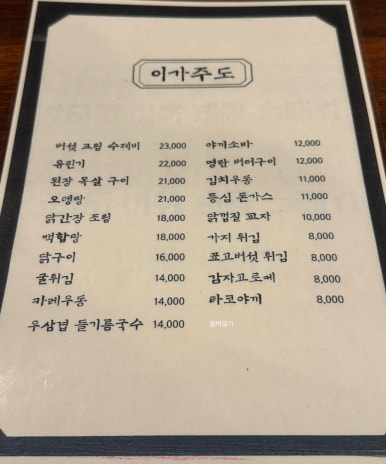 이가주도
버섯 크림 수제비 23,000
유린기 22,000
된장 목살 구이 21,000
오뎅탕 21,000
닭간장 조림 18,000
백합탕 18,000
닭구이 16,000
굴튀김 14,000
카레우동 14,000
우삼겹 들기름국수 14,000
야끼소바 12,000
명란 버터구이 12,000
김치우동 11,000
등심 돈가스 11,000
닭껍질 교자 10,000
가지 튀김 8,000
표고버섯 튀김 8,000
감자고로케 8,000
타코야끼 8,000